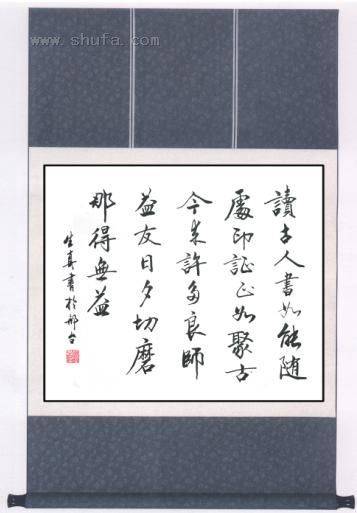 www.shufa.com
讀古人書如能隨
處印証正如聚古
今来許多良師
益友日夕切磨
那得無益
生真書於邢台